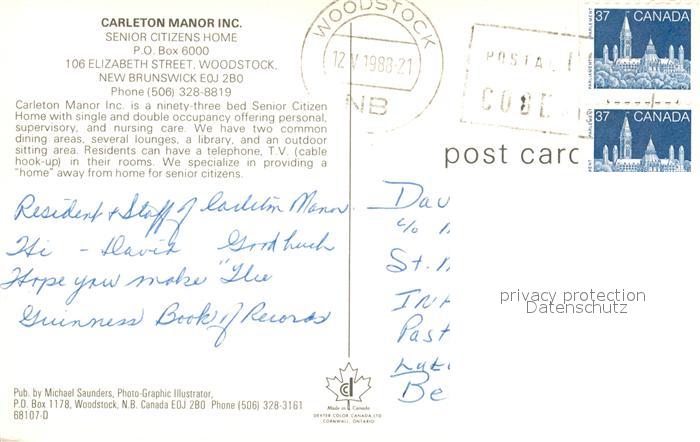 CARLETON MANOR INC.
SENIOR CITIZENS HOME
P.O. Box 6000
106 ELIZABETH STREET, WOODSTOCK,
NEW BRUNSWICK E0J 2B0
Phone (506) 328-8819
Carleton Manor Inc. is a ninety-three bed Senior Citizen
Home with single and double occupancy offering personal,
supervisory, and nursing care. We have two common
dining areas, several lounges, a library, and an outdoor
sitting area. Residents can have a telephone, T.V. (cable
hook-up) in their rooms. We specialize in providing a
"home" away from home for senior citizens.
Resident & Staff of Carleton Manor
Hi - David Good luck
Hope you make "The
Guinness Book of Records
Pub. by Michael Saunders, Photo-Graphic Illustrator,
P.O. Box 1178, Woodstock, N.B. Canada E0J 2B0 Phone (506) 328-3161
68107-D
WOODSTOCK
12 V 1988-21
NB
POSTAL
CODE
37 CANADA
PARLIAMENT
37 CANADA
post card
c/o
St.
privacy protection
Datenschutz
Made in Canada
DEXTER COLOR CANADA LTD.
CORNWALL, ONTARIO